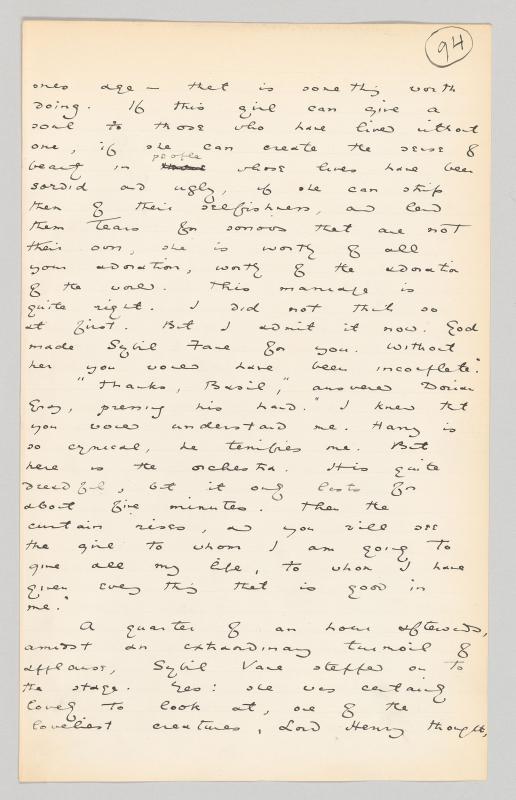 94
ones age — that is something worth
doing. If this girl can give a
soul to those who have lived without
one, if she can create the sense of
people
beauty in whose lives have been
sordid and ugly, if she can strip
them of their selfishness, and lend
them tears for sorrows that are not
their own, she is worthy of all
your adoration, worthy of the adoration
of the world. This marriage is
quite right. I did not think so
at first. But I admit it now. God
made Sybil Vane for you. Without
her you would have been incomplete."
"Thanks, Basil," answered Dorian
Gray, pressing his hand. "I knew that
you would understand me. Harry is
so cynical, he terrifies me. But
here is the orchestra. It is quite
dreadful, but it only lasts for
about five minutes. Then the
curtain rises, and you will see
the girl to whom I am going to
give all my life, to whom I have
given every thing that is good in
me."
A quarter of an hour afterwards,
amidst an extraordinary turmoil of
applause, Sybil Vane stepped on to
the stage. Yes: she was certainly
lovely to look at, one of the
loveliest creatures, Lord Henry thought,